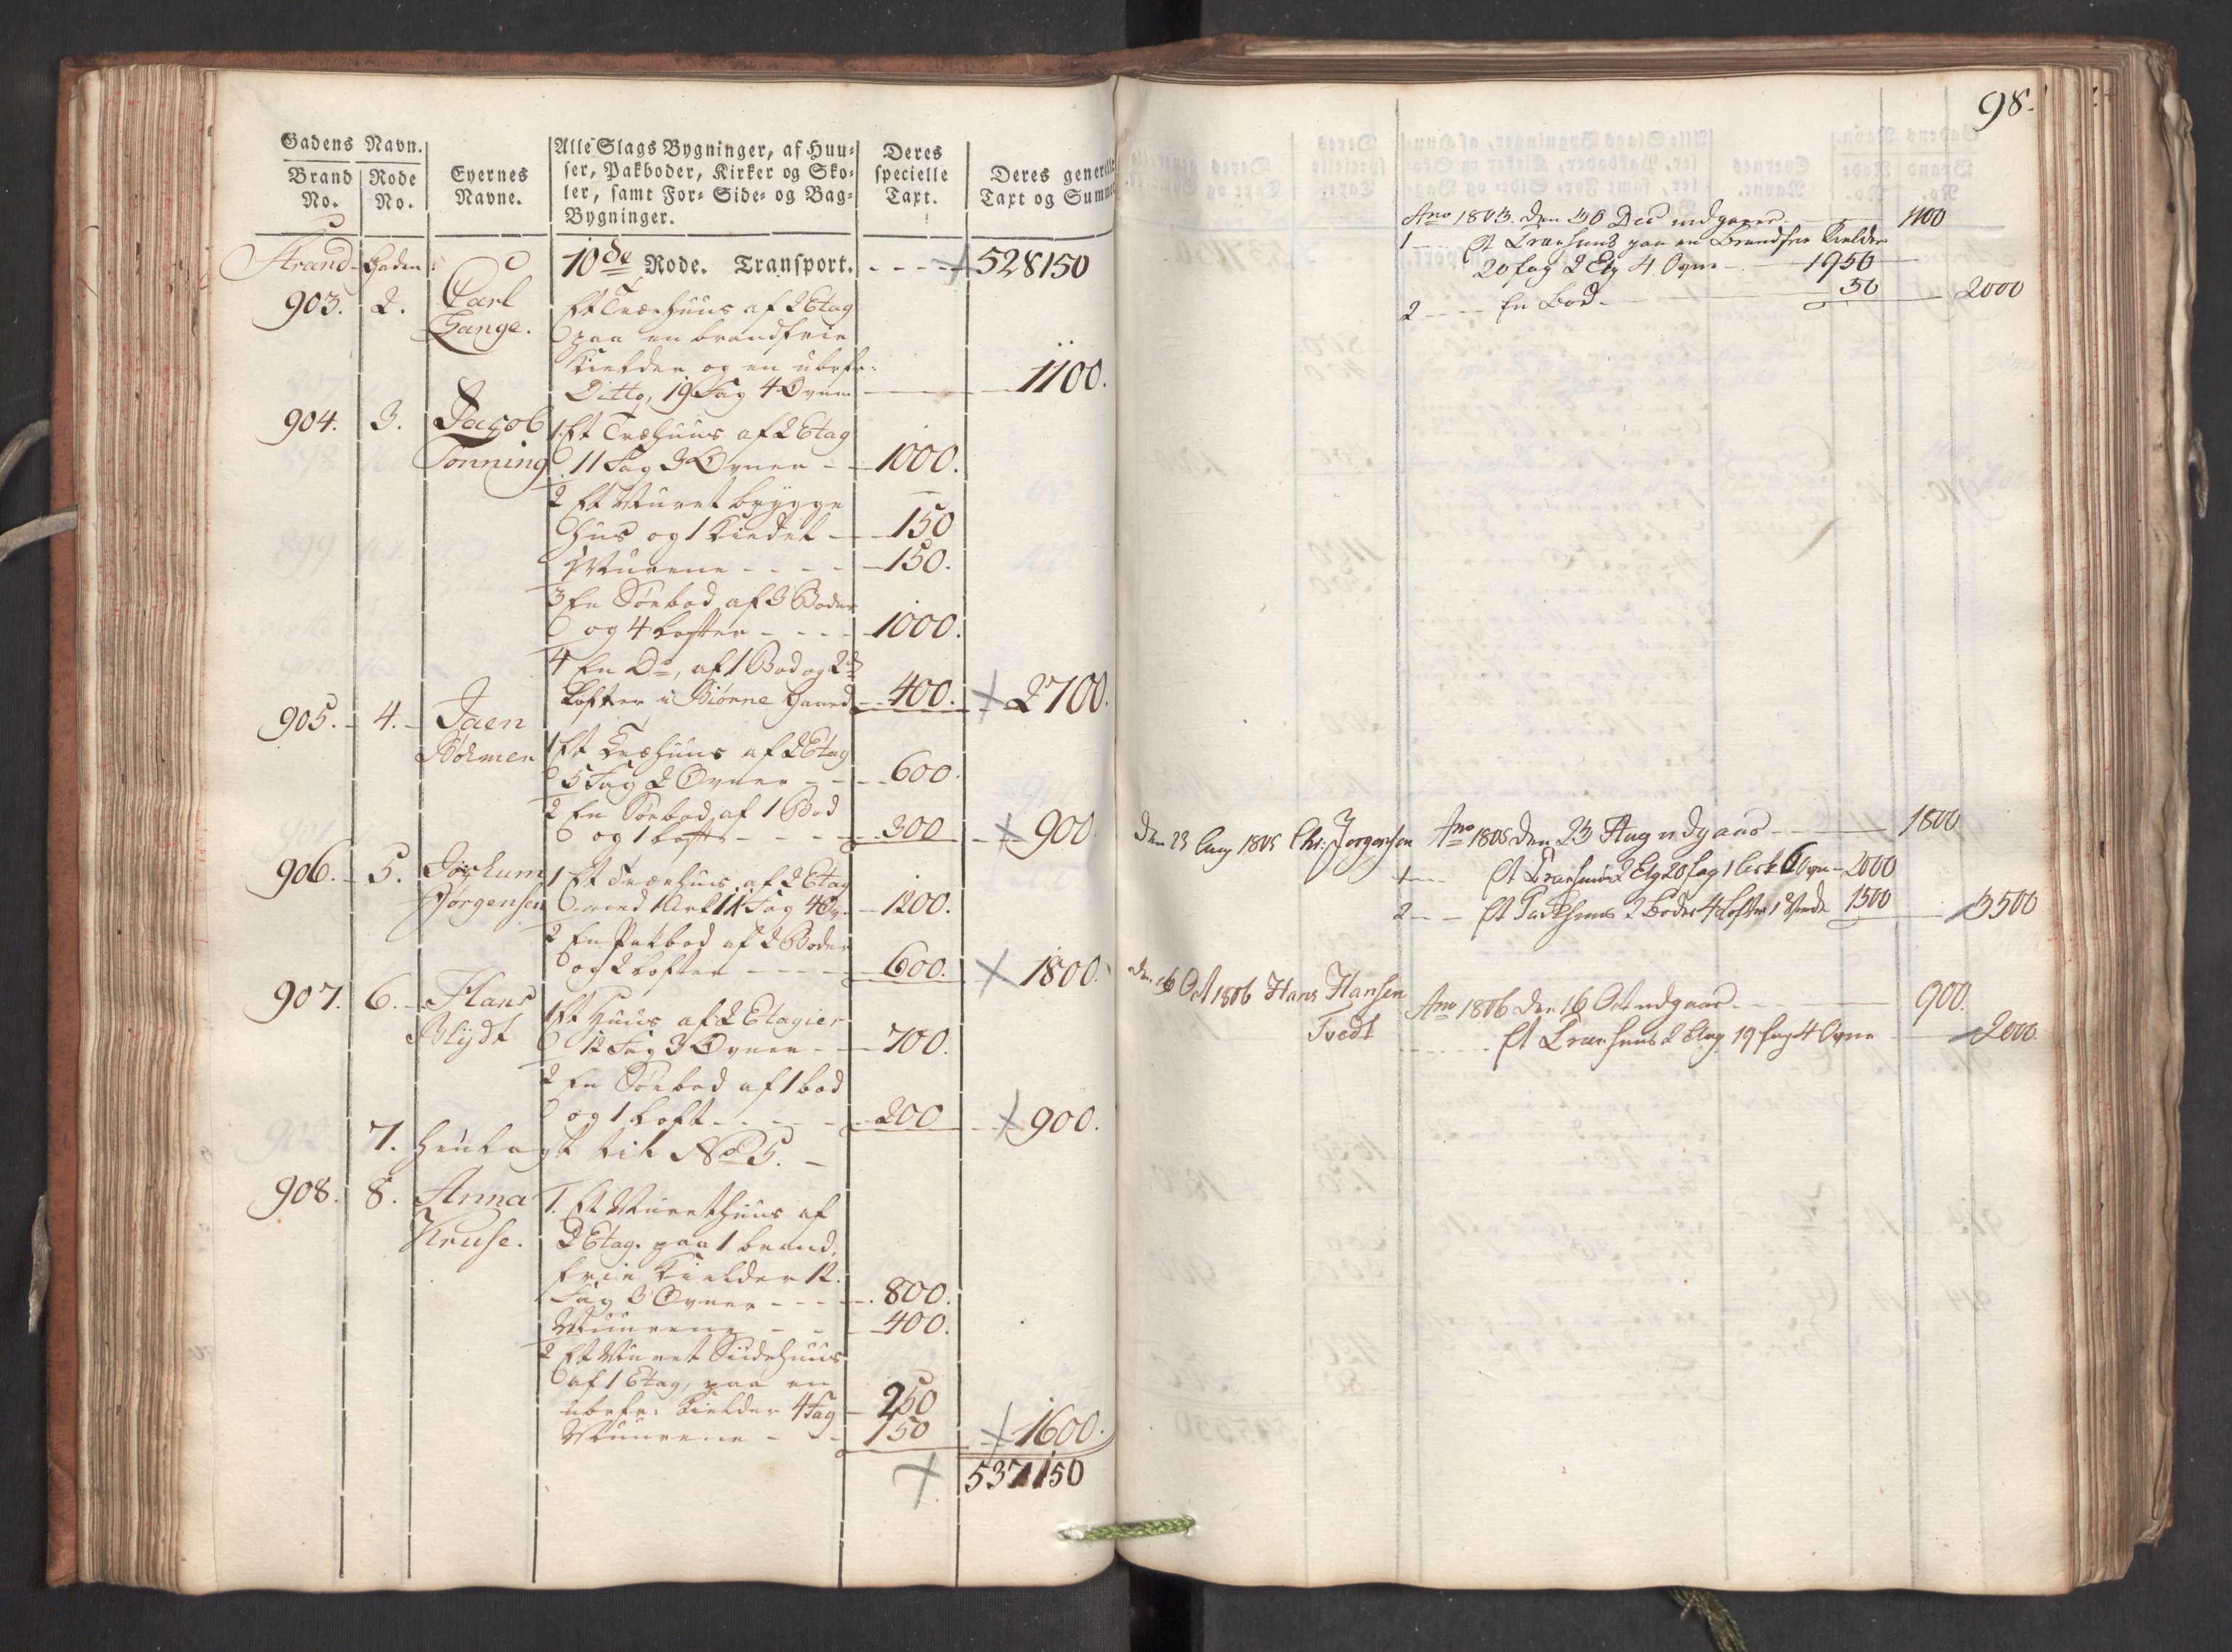 Gadens Navn.
Brand No.
Rode No.
Eyernes Navne.
Alle Slags Bygninger, af Huu-
ser, Pakboder, Kirker og Sko-
ler, samt For- Side- og Bag-
Bygninger.
Deres specielle Taxt.
Deres generelle
Taxt og Summe
Strand-Gaden. 10de Rode. Transport. 528150
903. 2. Carl Gange. Et Træehuus af 2 Etag
paa en brandfrie
Kielder og en ubrfr:
Ditto, 19 Fag 4 Ovne 1100.
904. 3. Jacob Tonning 1. Et Træhuus af 2 Etag
11 Fag 3 Ovner 1000.
2 Et Muret brygge
huus og 1 Kiedel 150
Murene 150.
3 En Søebod af 3 Boder
og 4 Lofter 1000.
4 En Do, af 1 Bod og 2de
Lofter i Biørne Gaard 400. 2700.
905. 4. Jaen 1 Et Træhuus af 2 Etag
5 Fag 2 Ovner 600.
2 En Søebod af 1 Bod
og 1 Loft 300 900
906. 5. Jørgensen 1 Et Træehuus af 2 Etag
med 1 Ark 11 Fag 4 Ov. 1200.
2 En Pakbod af 2 Boder
og 2 Lofter 600. 1800.
907. 6. Hans Blydt 1 Et Huus af 2 Etagier
12 Fag 3 Ovner 700.
2 En Søebod af 1 bod
og 1 Loft 200 900.
7. henlagt til No 5.
908. 8. Anna Kruse. 1. Et Muret huus af
2 Etag. paa 1 brand,
frie Kielder 12.
Fag 3 Ovner 800.
Muurene 400.
2 Et Muret Siidehuus
af 1 Etag, paa en
ubrfr: Kielder 4 Fag 250
Muurene 150 1600.
537150
98.
Ano 1803. den 30 Dec udgaaer 1100
1 Et Træehuus paa en Brandfrie Kielder
20 fag 2 Etg 4 Ovne 1950
2 En Bod 50 2000
Den 23 Aug 1805 Chr: Jørgensen Ano 1805 den 23 Aug udgaaer 1800
1 Et Træehuus 2 Etg 20 fag 1 Ark 6 Ovne 2000
2 Et Pakhuus 2 Boder 4 Lofter 1 Vinde 1500 3500
Den 16 Oct 1806 Hans Hansen Tvedt Ano 1806 den 16 Oct udgaaer 900.
Et Træehuus 2 Etag 19 fag 4 Ovne 2000.